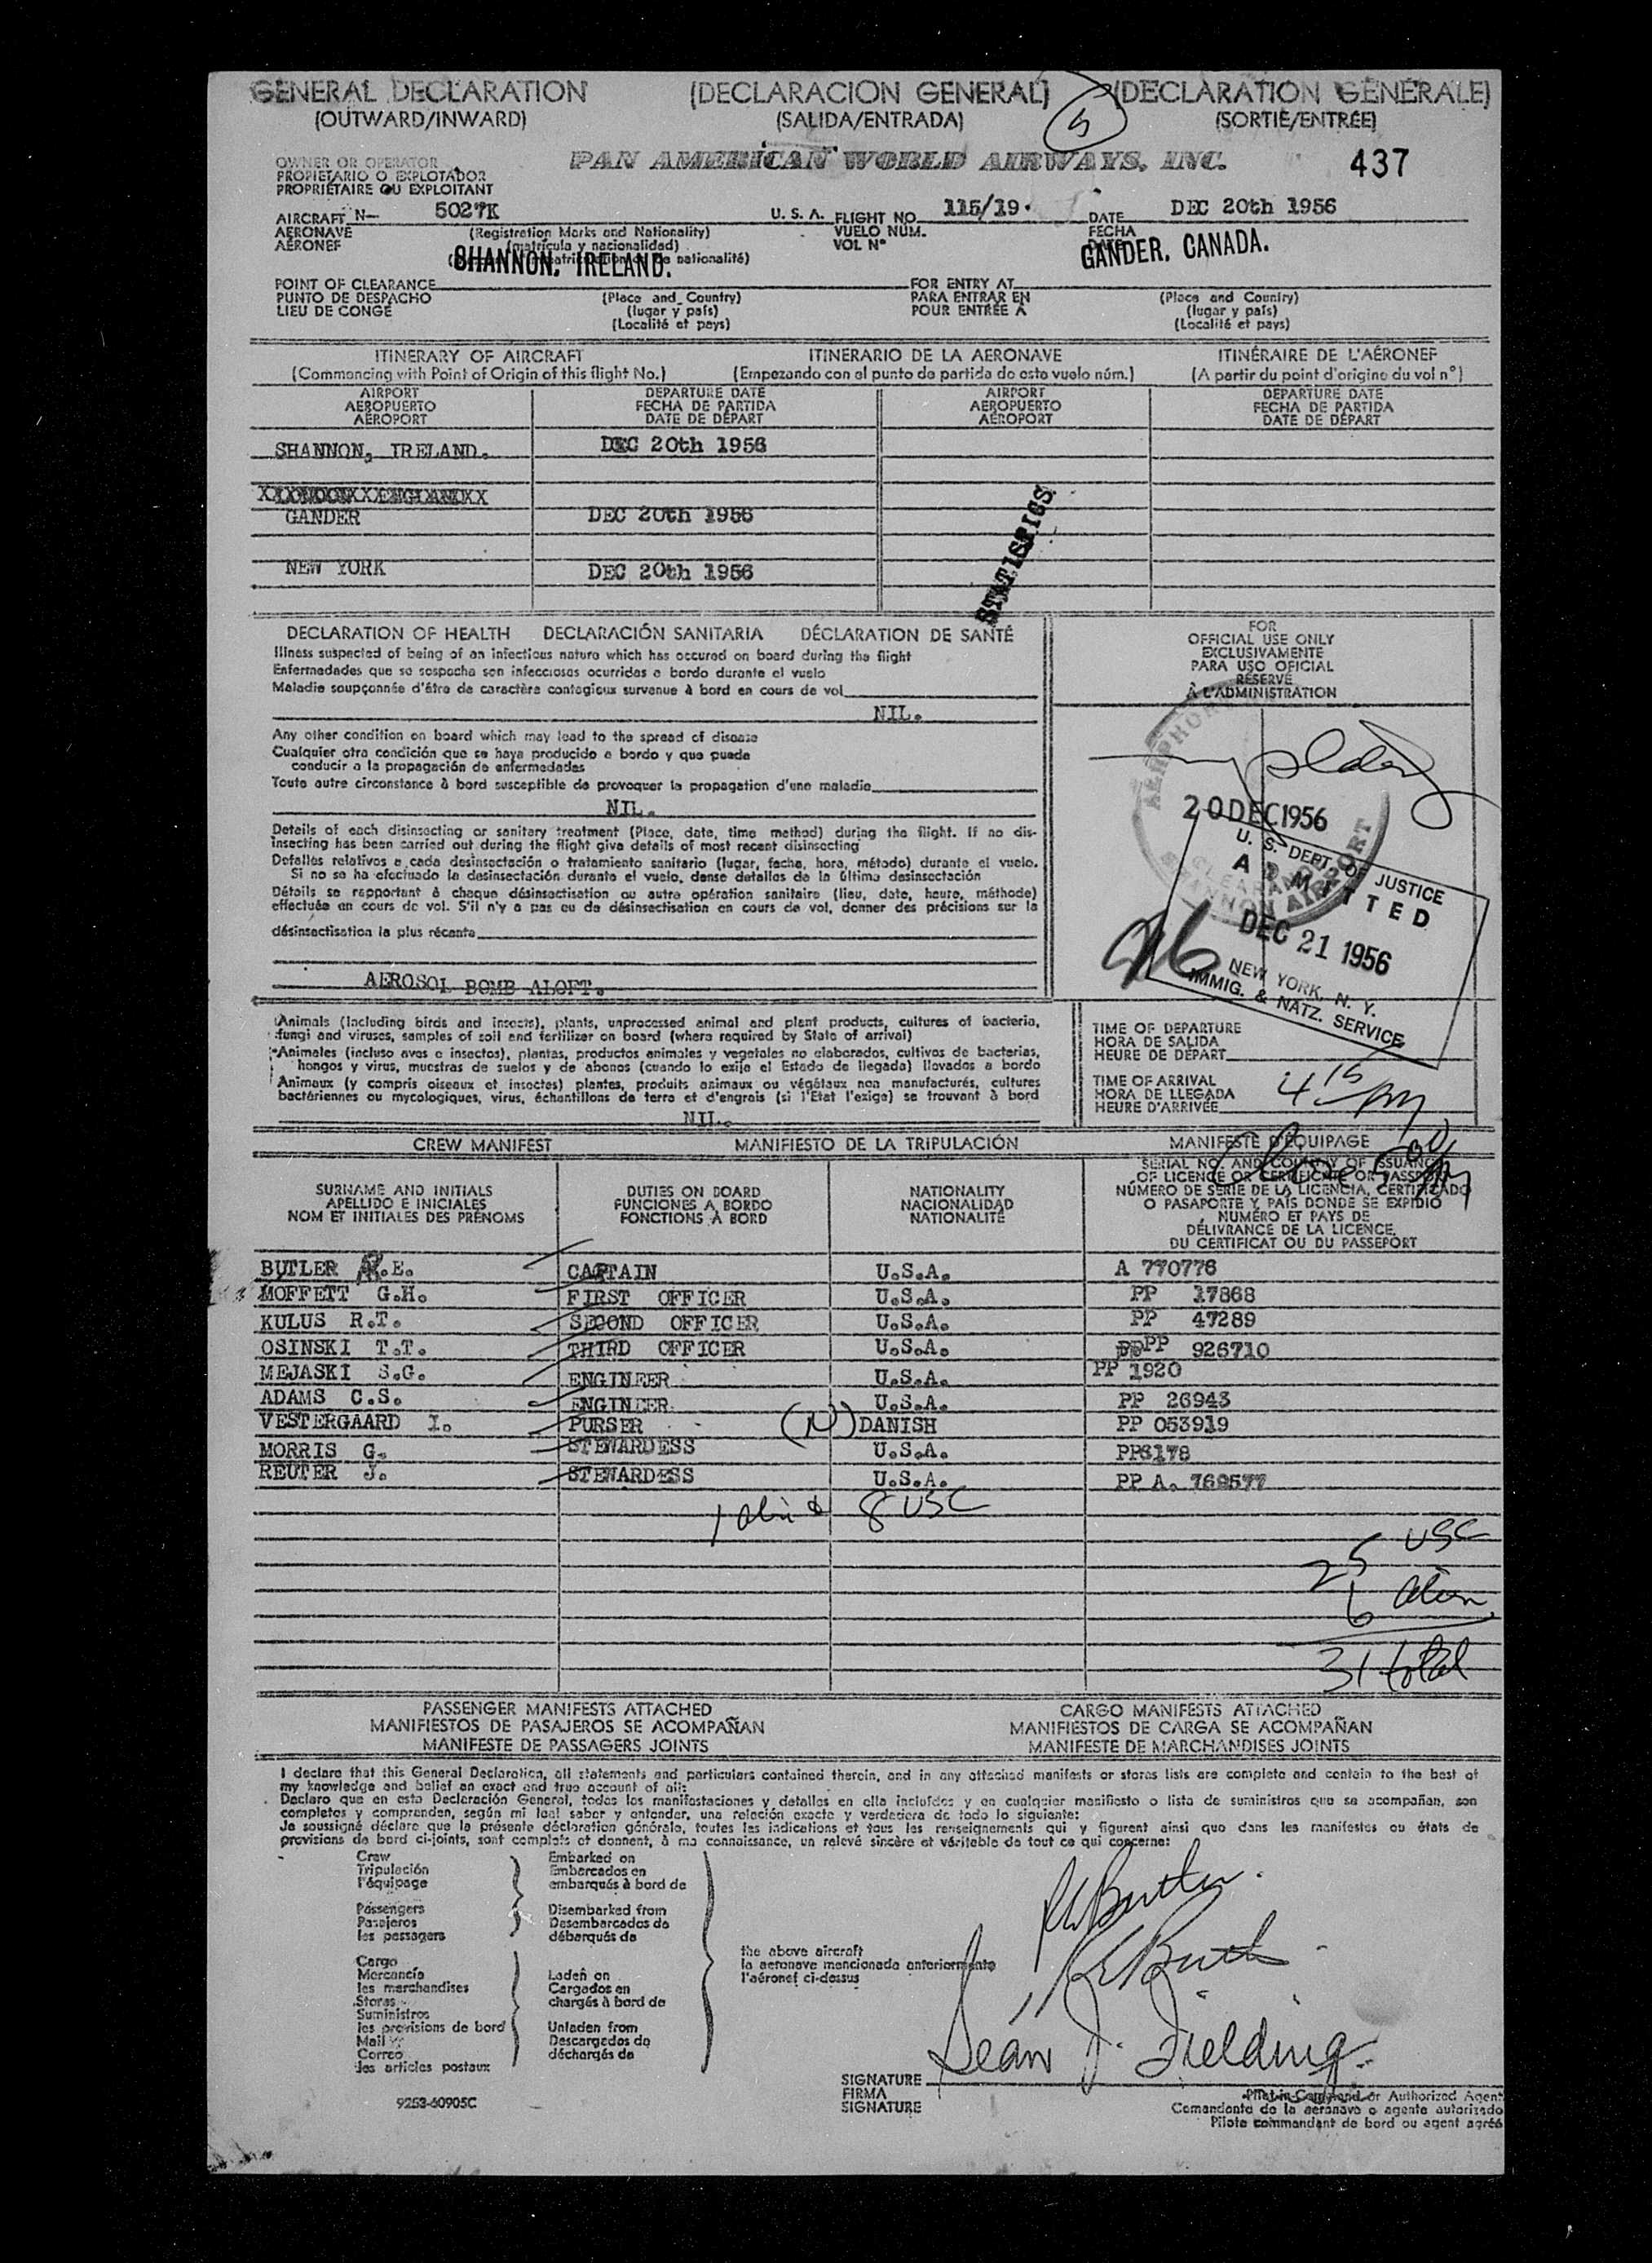 GENERAL DECLARATION (DECLARACION GENERAL) (DECLARATION GÉNÉRALE)
(OUTWARD/INWARD) (SALIDA/ENTRADA) (SORTIE/ENTRÉE)
5
OWNER OR OPERATOR
PROPIETARIO O EXPLOTADOR
PROPRIÉTAIRE OU EXPLOITANT
PAN AMERICAN WORLD AIRWAYS, INC. 437
AIRCRAFT N— 5027K U. S. A. FLIGHT NO. 115/19. DATE DEC 20th 1956
AERONAVE (Registration Marks and Nationality) VUELO NÚM. FECHA
AÉRONEF (matrícula y nacionalidad) VOL Nº
nationalité)
SHANNON, IRELAND. GANDER, CANADA.
POINT OF CLEARANCE FOR ENTRY AT
PUNTO DE DESPACHO (Place and Country) PARA ENTRAR EN (Place and Country)
LIEU DE CONGÉ (lugar y país) POUR ENTRÉE À (lugar y país)
(Localité et pays) (Localité et pays)
ITINERARY OF AIRCRAFT ITINERARIO DE LA AERONAVE ITINÉRAIRE DE L'AÉRONEF
(Commencing with Point of Origin of this flight No.) (Empezando con el punto de partida de este vuelo núm.) (A partir du point d'origine du vol nº)
AIRPORT DEPARTURE DATE AIRPORT DEPARTURE DATE
AEROPUERTO FECHA DE PARTIDA AEROPUERTO FECHA DE PARTIDA
AÉROPORT DATE DE DÉPART AÉROPORT DATE DE DÉPART
SHANNON, IRELAND. DEC 20th 1956
GANDER DEC 20th 1956
NEW YORK DEC 20th 1956
STATISTICS
DECLARATION OF HEALTH DECLARACIÓN SANITARIA DÉCLARATION DE SANTÉ
Illness suspected of being of an infectious nature which has occured on board during the flight
Enfermedades que se sospecha son infecciosas ocurridas a bordo durante el vuelo
Maladie soupçonnée d'être de caractère contagieux survenue à bord en cours de vol
NIL.
Any other condition on board which may lead to the spread of disease
Cualquier otra condición que se haya producido a bordo y que puede
conducir a la propagación de enfermedades
Toute autre circonstance à bord susceptible de provoquer la propagation d'une maladie
NIL.
Details of each disinsecting or sanitary treatment (Place, date, time method) during the flight. If no dis-
insecting has been carried out during the flight give details of most recent disinsecting
Detalles relativos a cada desinsectación o tratamiento sanitario (lugar, fecha, hora, método) durante el vuelo.
Si no se ha efectuado la desinsectación durante el vuelo, dense detalles de la última desinsectación
Détails se rapportant à chaque désinsectisation ou autre opération sanitaire (lieu, date, heure, méthode)
effectuée en cours de vol. S'il n'y a pas eu de désinsectisation en cours de vol, donner des précisions sur la
désinsectisation la plus récente
AEROSOL BOMB ALOFT.
FOR
OFFICIAL USE ONLY
EXCLUSIVAMENTE
PARA USO OFICIAL
RÉSERVÉ
À L'ADMINISTRATION
20 DEC 1956
SHANNON AIRPORT
U. S. DEPT. OF JUSTICE
ADMITTED
DEC 21 1956
NEW YORK, N. Y.
IMMIG. & NATZ. SERVICE
Animals (Including birds and insects), plants, unprocessed animal and plant products, cultures of bacteria,
fungi and viruses, samples of soil and fertilizer on board (where required by State of arrival)
Animales (incluso aves e insectos), plantas, productos animales y vegetales no elaborados, cultivos de bacterias,
hongos y virus, muestras de suelos y de abonos (cuando lo exija el Estado de llegada) llevados a bordo
Animaux (y compris oiseaux et insectes) plantes, produits animaux ou végétaux non manufacturés, cultures
bactériennes ou mycologiques, virus, échantillons de terre et d'engrais (si l'Etat l'exige) se trouvant à bord
NIL.
TIME OF DEPARTURE
HORA DE SALIDA
HEURE DE DÉPART
TIME OF ARRIVAL
HORA DE LLEGADA
HEURE D'ARRIVÉE
4 15 pm
CREW MANIFEST MANIFIESTO DE LA TRIPULACIÓN MANIFESTE D'ÉQUIPAGE
SURNAME AND INITIALS DUTIES ON BOARD NATIONALITY SERIAL NO. AND COUNTRY OF ISSUANCE
APELLIDO E INICIALES FUNCIONES A BORDO NACIONALIDAD OF LICENCE OR CERTIFICATE OR PASSPORT
NOM ET INITIALES DES PRÉNOMS FONCTIONS À BORD NATIONALITÉ NÚMERO DE SERIE DE LA LICENCIA, CERTIFICADO
O PASAPORTE Y PAÍS DONDE SE EXPIDIÓ
NUMÉRO ET PAYS DE
DÉLIVRANCE DE LA LICENCE,
DU CERTIFICAT OU DU PASSEPORT
BUTLER R.E. CAPTAIN U.S.A. A 770776
MOFFETT G.H. FIRST OFFICER U.S.A. PP 17868
KULUS R.T. SECOND OFFICER U.S.A. PP 47289
OSINSKI T.T. THIRD OFFICER U.S.A. PP 926710
MEJASKI S.G. ENGINEER U.S.A. PP 1920
ADAMS C.S. ENGINEER U.S.A. PP 26943
VESTERGAARD I. PURSER (N) DANISH PP 053919
MORRIS G. STEWARDESS U.S.A. PP6178
REUTER J. STEWARDESS U.S.A. PP A. 769577
1 alien 8 USC
25 USC
6 alien
31 total
PASSENGER MANIFESTS ATTACHED CARGO MANIFESTS ATTACHED
MANIFIESTOS DE PASAJEROS SE ACOMPAÑAN MANIFIESTOS DE CARGA SE ACOMPAÑAN
MANIFESTE DE PASSAGERS JOINTS MANIFESTE DE MARCHANDISES JOINTS
I declare that this General Declaration, all statements and particulars contained therein, and in any attached manifests or stores lists are complete and contain to the best of
my knowledge and belief an exact and true account of all:
Declaro que en esta Declaración General, todas las manifestaciones y detalles en ella incluídos y en cualquier manifiesto o lista de suministros que se acompañan, son
completos y comprenden, según mi leal saber y entender, una relación exacta y verdadera de todo lo siguiente:
Je soussigné déclare que la présente déclaration générale, toutes les indications et tous les renseignements qui y figurent ainsi que dans les manifestes ou états de
provisions de bord ci-joints, sont complets et donnent, à ma connaissance, un relevé sincère et véritable de tout ce qui concerne:
Crew Embarked on
Tripulación Embarcados en
l'équipage embarqués à bord de
Passengers Disembarked from
Pasajeros Desembarcados de
les passagers débarqués de
the above aircraft
la aeronave mencionada anteriormente
l'aéronef ci-dessus
Cargo
Mercancía Laden on
les marchandises Cargados en
Stores chargés à bord de
Suministros
les provisions de bord Unladen from
Mail Descargados de
Correo déchargés de
les articles postaux
RE Butler.
Sean J. Fielding.
SIGNATURE
FIRMA
SIGNATURE
Pilot-in-Command or Authorized Agent
Comandante de la aeronave o agente autorizado
Pilote commandant de bord ou agent agréé
9253-60905C